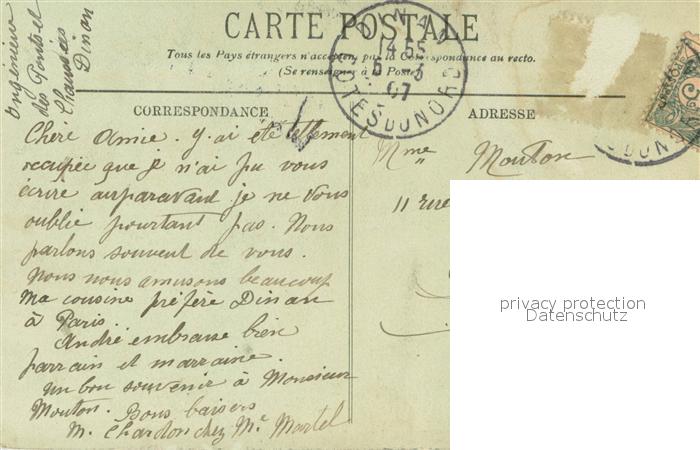 Ingénieur
des Ponts et
Chaussées
Dinan
CARTE POSTALE
Tous les Pays étrangers n'acceptent pas la Correspondance au recto.
(Se renseigner à la Poste)
DINAN
14 55
5 -3
07
COTES DU NORD
CORRESPONDANCE
ADRESSE
Chère Amie. y. ai été tellement
occupée que je n'ai pu vous
écrire auparavant je ne vous
oublie pourtant pas. Nous
parlons souvent de vous.
Nous nous amusons beaucoup
Ma cousine préfère Dinan
à Paris.
André embrasse bien
parrain et marraine.
un bon souvenir à Monsieur
Mouton. Bons baisers
M. Chardon chez Me Martel
Mme Mouton
11 rue
DU NO
privacy protection
Datenschutz